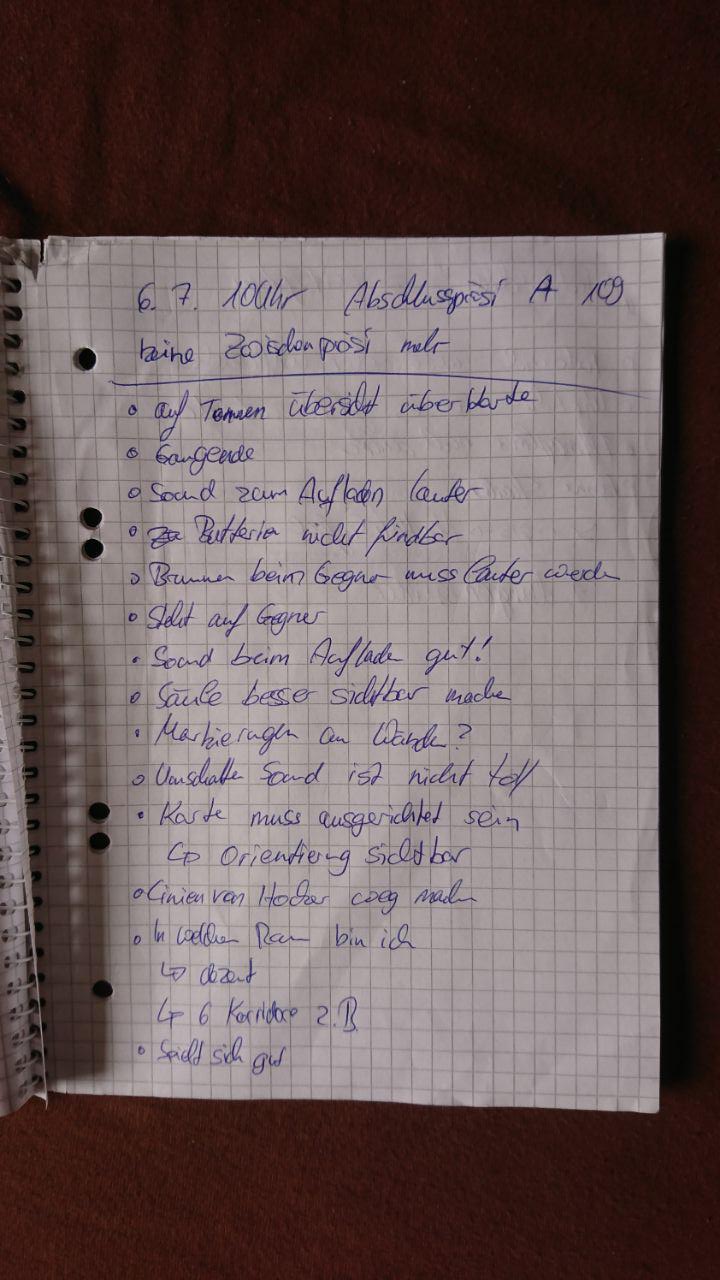 6. 7. 10 Uhr Abschlusspräsi A 109
keine Zwischenpräsi mehr
auf Tonnen übersicht über Karte
Gangende
Sound zum Aufladen lauter
Batterien nicht findbar
Brummen beim Gegner muss lauter werden
Sicht auf Gegner
Sound beim Aufladen gut!
Säule besser sichtbar machen
Markierungen an Wänden?
Umschalten Sound ist nicht toll
Karte muss ausgerichtet sein
↳ Orientierung sichtbar
Linien von Hocker weg machen
In welchen Raum bin ich
↳ dezent
↳ 6 Korridore z.B.
Spielt sich gut